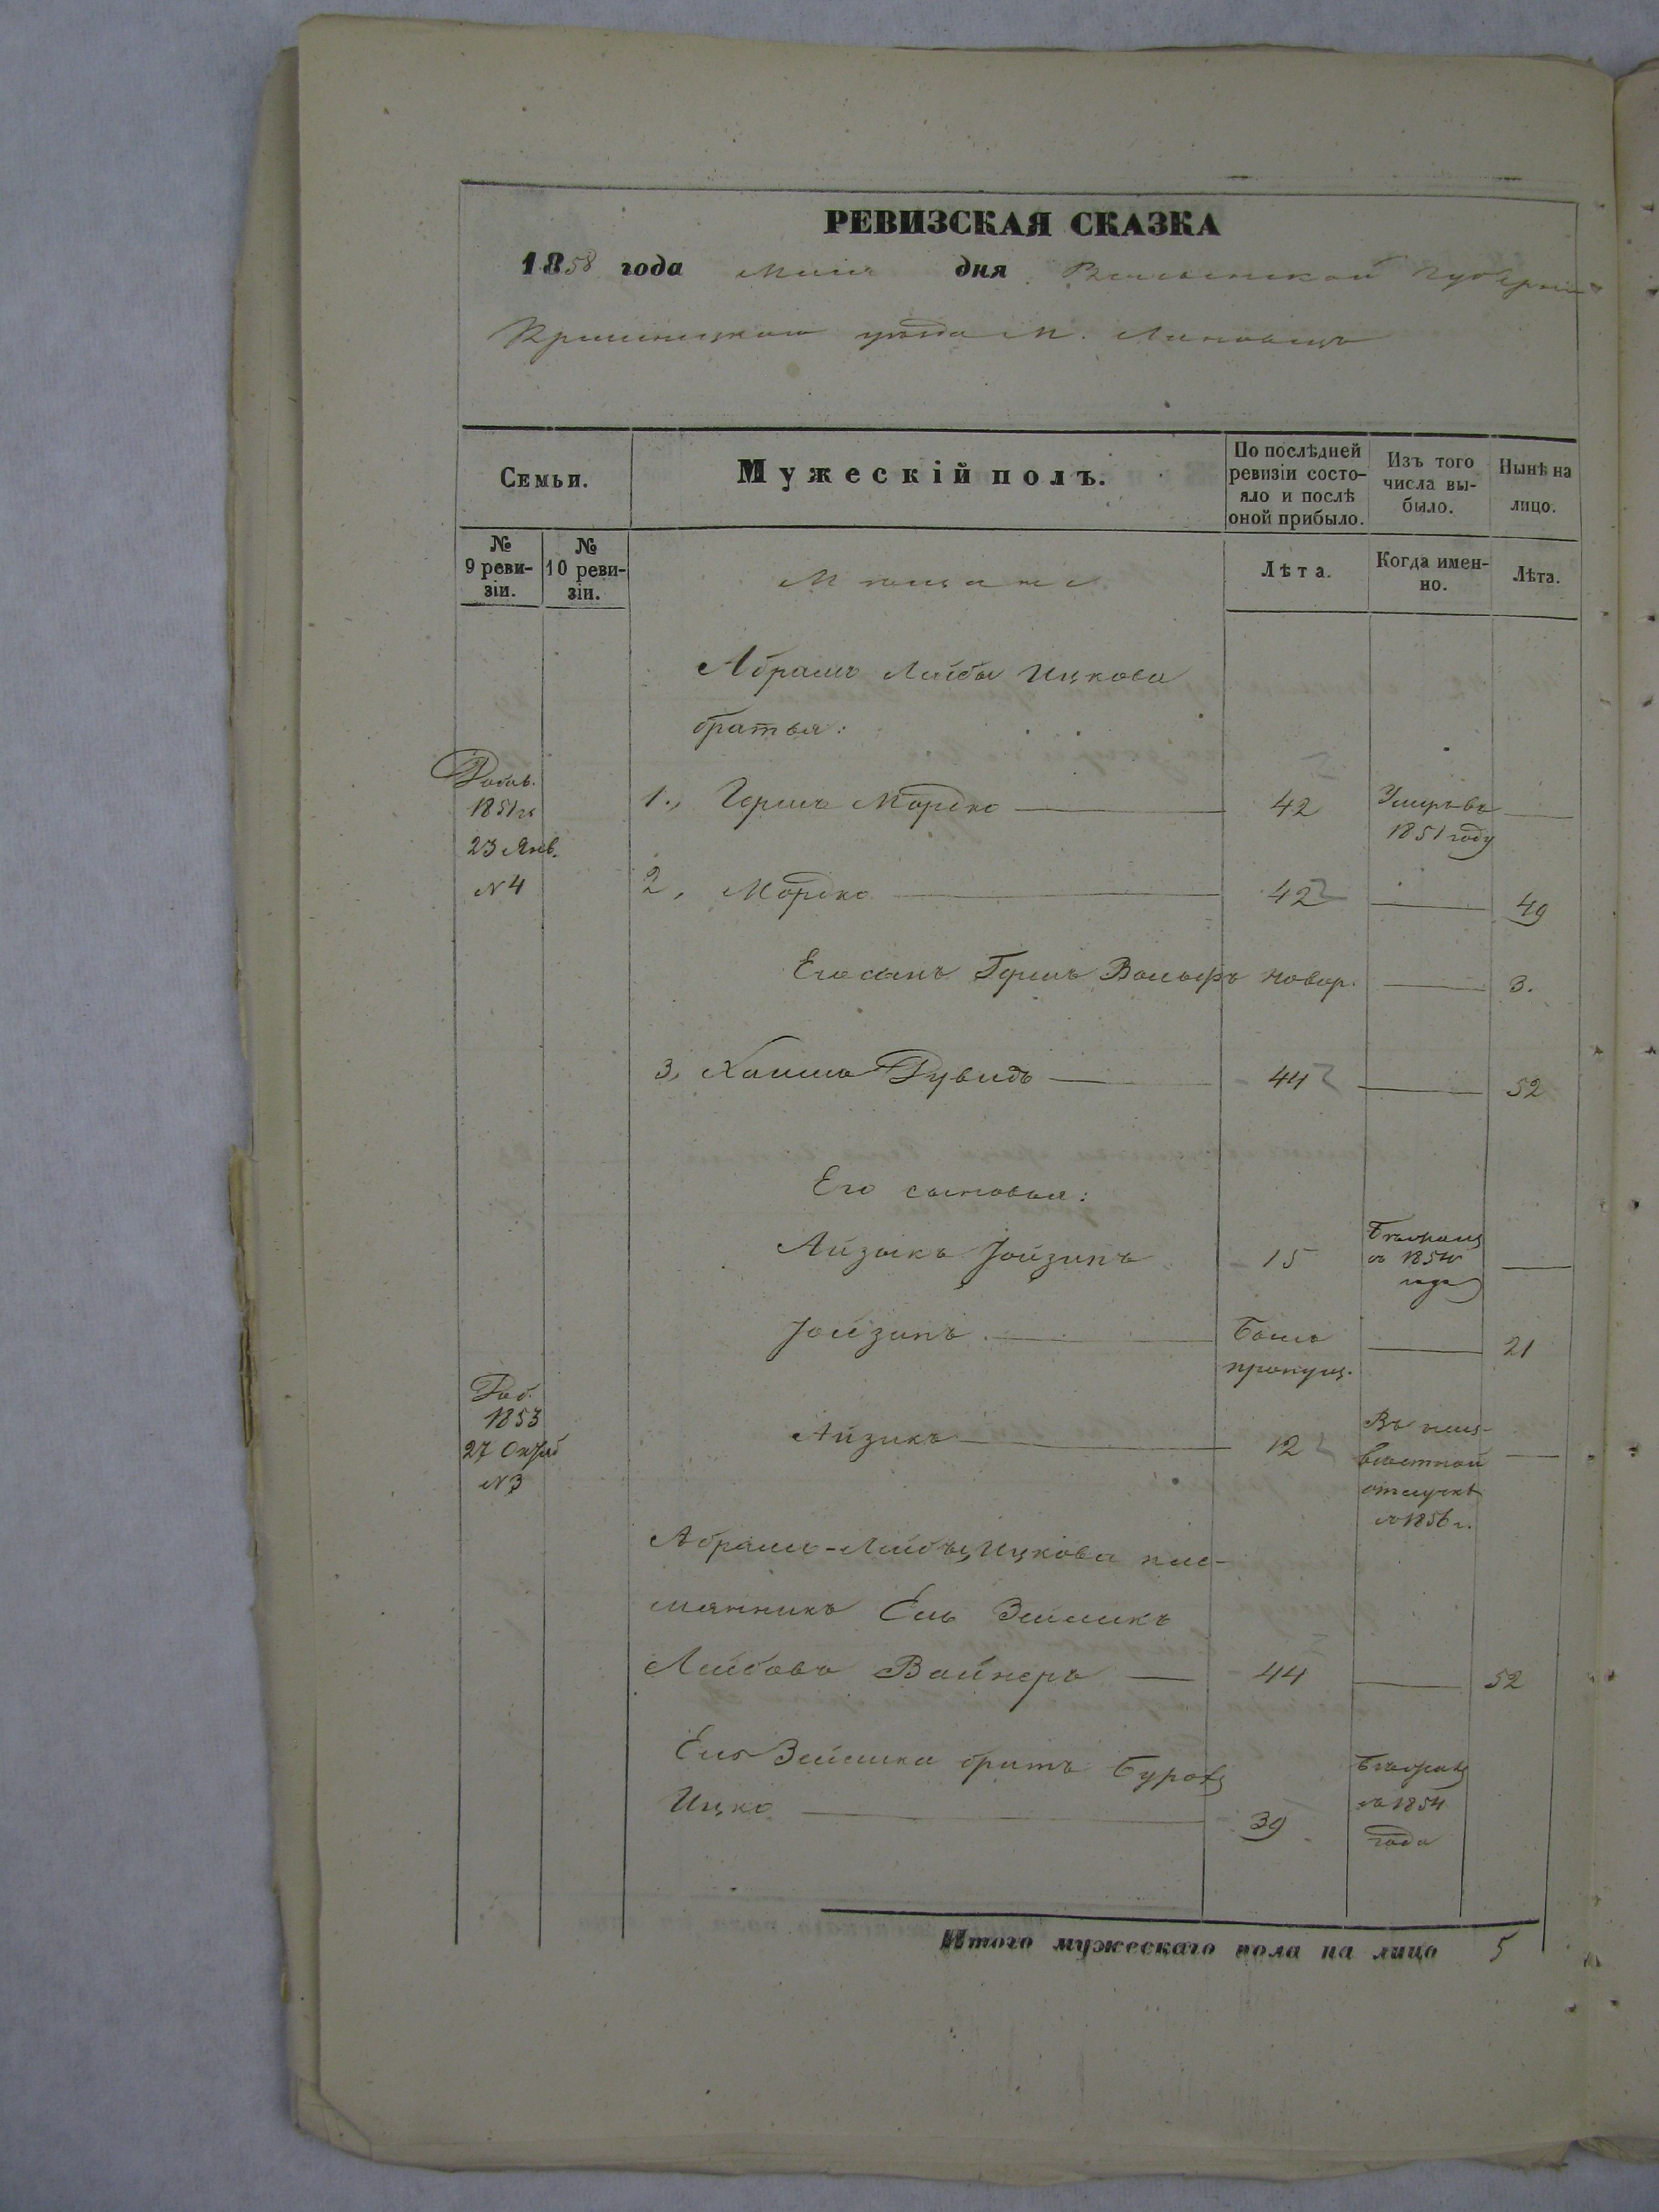 РЕВИЗСКАЯ СКАЗКА
1858 года Мая дня Волынской губерніи
Кременецкаго уѣзда м. Лановецъ
Семьи.
Мужескій полъ.
По послѣдней ревизіи состояло и послѣ оной прибыло.
Изъ того числа выбыло.
Нынѣ на лицо.
№ 9 ревизіи.
№ 10 ревизіи.
Мѣщане
Лѣта.
Когда именно.
Лѣта.
Абрамъ Лейбы Ицкова
братья:
1851 г.
23 Янв.
№ 4
1., Гершъ Мордко 42 Умеръ въ 1851 году
2, Мордко 42 49
Его сынъ Гершъ Вольфъ новор. 3.
3, Хаимъ Дувидъ 44 52
Его сыновья:
Айзыкъ Іойзипъ 15 въ 1854 года
Іойзипъ Былъ пропущ. 21
1853
27 Октяб
№ 3
Айзикъ 12 Въ неизвѣстной отлучкѣ съ 1856 г.
Абрамъ-Лейбы Ицкова пле-
мянникъ Ель Зейликъ
Лейбовъ Вайнеръ 44 52
Ель Зейлика братъ Бурохъ
Ицко 39 съ 1854 года
Итого мужескаго пола на лицо 5